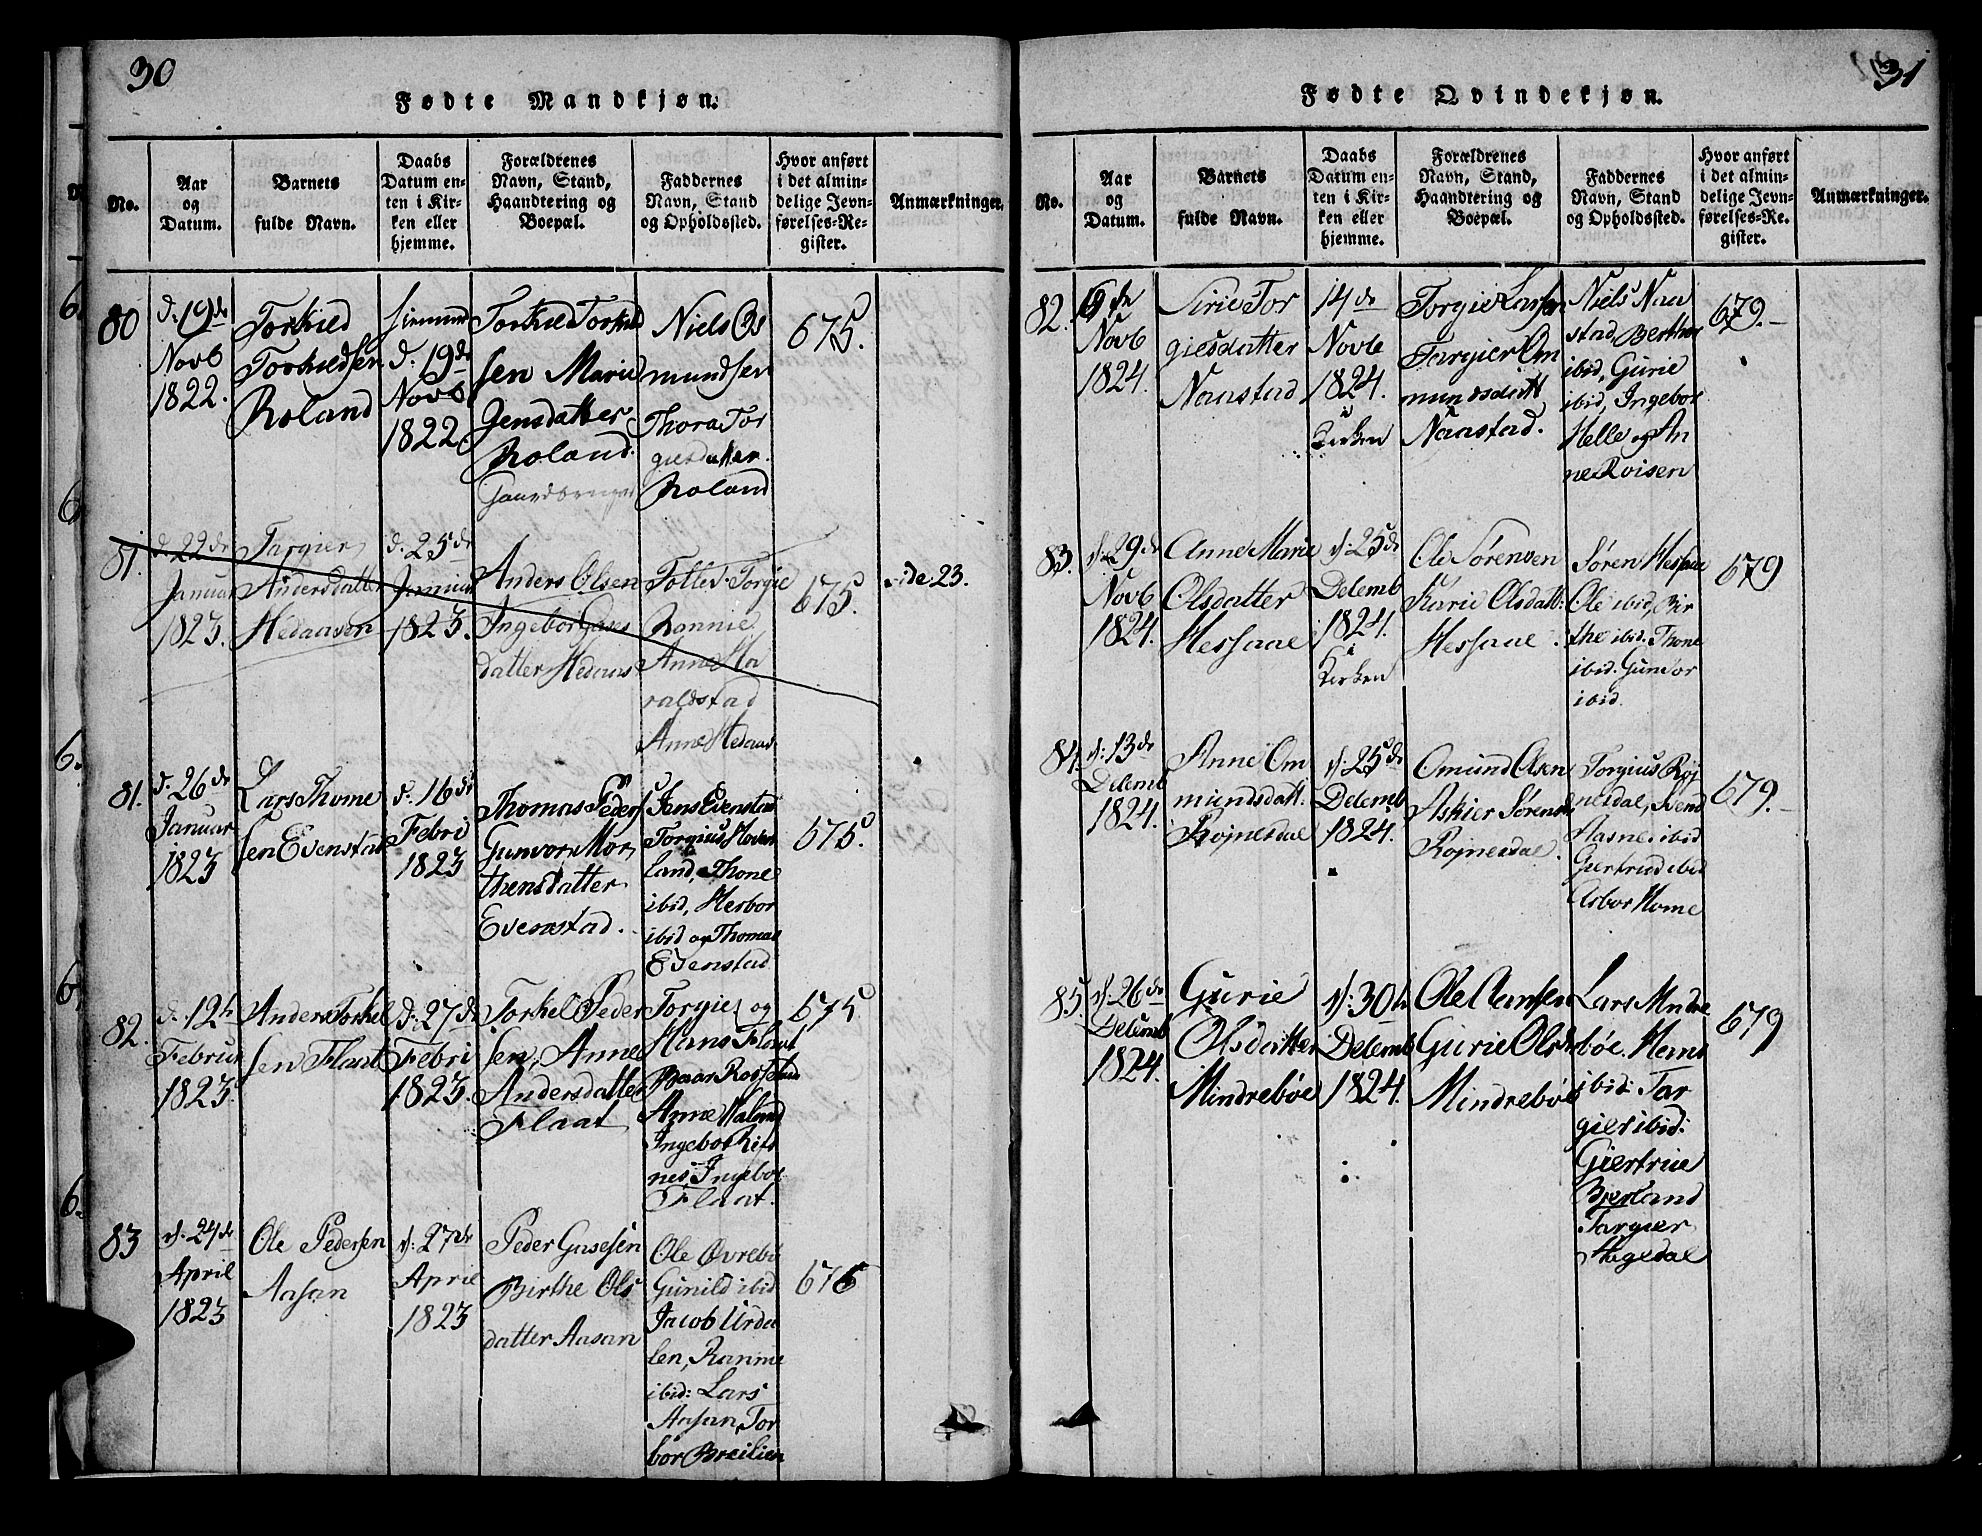 30
Fødte Mandkjøn.
No.
Aar
og
Datum.
Barnets
fulde Navn.
Daabs
Datum en-
ten i Kir-
ken eller
hjemme.
Forældrenes
Navn, Stand,
Haandtering og
Boepæl.
Faddernes
Navn, Stand
og Opholdssted.
Hvor anført
i det almin-
delige Jevn-
førelses-Re-
gister.
Anmærkninger.
80
d. 19de
Novb
1822.
Torkild
Torkildsen
Roland
hiemme
d. 19de
Novb
1822
Torkild Torkild
sen Marie
Jensdatter
Roland.
Niels Os
mundsen
Thora Tor
giesdatter
Roland
675.
81.
d. 22de
Januar
1823.
Targier
Andersdatter
Hedaasen
d. 25de
Januar
1823.
Anders Olsen
Ingebor Gases
datter Hedaas
Tollef Torgie
Rannie
Anne Ha
raldstad
Anne Hedaas
675.
vide 23.
81.
d. 26de
Januar
1823
Lars Thome
sen Evenstad
d. 16de
Febri
1823
Thomas Peders
Gunvor Mor
thensdatter
Evenstad.
Jens Evenstad
Torgius Hoven
land, Thone
ibid, Herbor
ibid og Thomas
Evenstad
675.
82.
d. 12te
Februar
1823.
Anders Torkel
sen Flaat
d. 27de
Febri
1823.
Torkel Peder
sen, Anne
Andersdatter
Flaat
Torgie og
Hans Flaat
Anne
Ingebor
nes, Ingebor
Flaat.
675
83
d. 24de
April
1823
Ole Pedersen
Aasan
d. 27de
April
1823
Peder Gusesen
Birthe Ols
datter Aasan
Ole Øvrebø
Gunild ibid
Jacob Urda
len, Ranme
ibid: Lars
Aasan, Tor
bor Breilien
676
31
Fødte Qvindekjøn.
No.
Aar
og
Datum.
Barnets
fulde Navn.
Daabs
Datum en-
ten i Kir-
ken eller
hjemme.
Forældrenes
Navn, Stand,
Haandtering og
Boepæl.
Faddernes
Navn, Stand
og Opholdssted.
Hvor anført
i det almin-
delige Jevn-
førelses-Re-
gister.
Anmærkninger.
82.
6de
Novb
1824.
Sirie Tor
giesdatter
Naastad
14de
Novb
1824.
i
Kirken
Torgie Larsen
Targier Om
mundsdatt
Naastad.
Niels Naa
stad, Berthe
ibid, Gurie
ibid, Ingebor
Helle og An
ne Roisen
679.
83.
d. 29de
Novb
1824.
Anne Marie
Olsdatter
Hessaae
d. 25de
Decemb
1824.
i
Kirken
Ole Sørensen
Karie Olsdatt:
Hessaae.
Søren Hessaae
Ole ibid, Bir
the ibid. Thone
ibid. Gundor
ibid.
679
84.
d. 13de
Decemb
1824.
Anne Om
mundsdatt.
Røjnesdal
d. 25de
Decemb
1824.
Omund Olsen
Askier Sørens
Røjnesdal.
Torgius Røj
nesdal, Svend
Aasne ibid
Giertrud ibid
Asbor Home
679.
85.
d. 26de
Decemb
1824.
Gurie
Olsdatter
Mindrebøe
d. 30te
Decemb
1824.
Ole Aansen
Gurie Olsd
Mindrebøe
Lars Mndre
bøe. Hans
ibid: Tar
gier ibid:
Giertrue
Bjerland
Targier
Hægedal
679